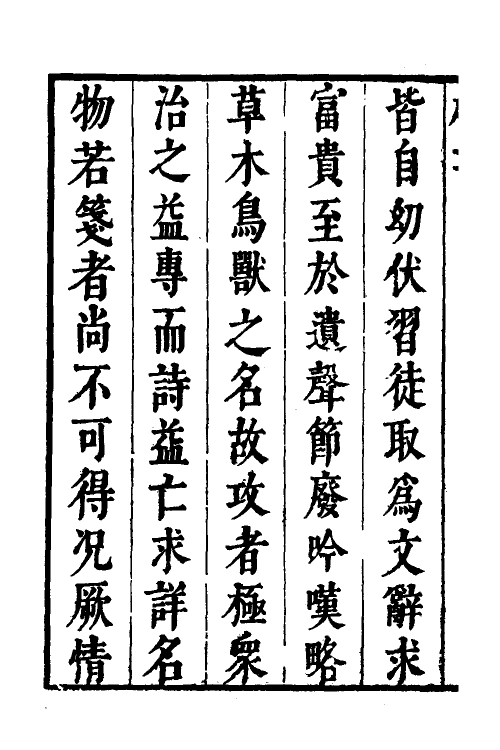 皆自幼伏習徒取爲文辭求
富貴至於遺聲節廢吟嘆略
草木鳥獸之名故攻者極衆
治之益專而詩益亡求詳名
物若箋者尚不可得况厥情